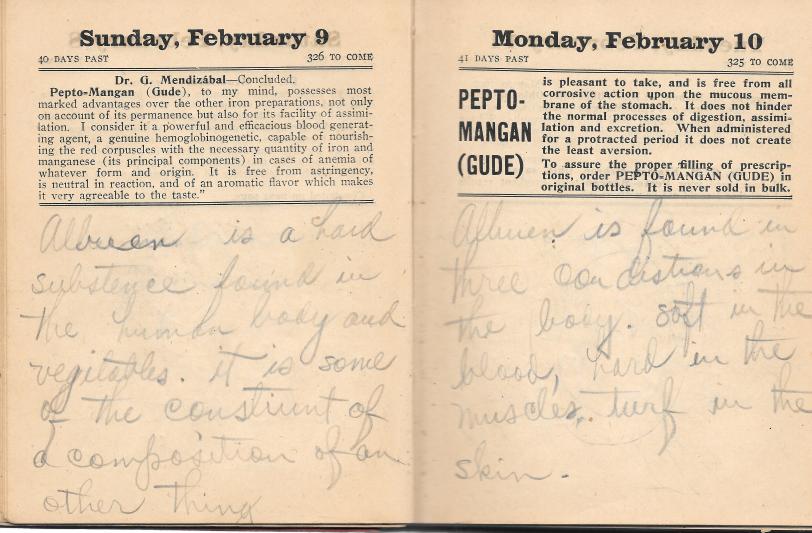 Sunday, February 9
40 DAYS PAST 326 TO COME
Dr. G. Mendizábal—Concluded.
Pepto-Mangan (Gude), to my mind, possesses most
marked advantages over the other iron preparations, not only
on account of its permanence but also for its facility of assimi-
lation. I consider it a powerful and efficacious blood generat-
ing agent, a genuine hemoglobinogenetic, capable of nourish-
ing the red corpuscles with the necessary quantity of iron and
manganese (its principal components) in cases of anemia of
whatever form and origin. It is free from astringency,
is neutral in reaction, and of an aromatic flavor which makes
it very agreeable to the taste."
Albuen is a hard
substence found in
the human body and
vegitables. it is some
of the constiunt of
a composition of an
other thing
Monday, February 10
41 DAYS PAST 325 TO COME
PEPTO-
MANGAN
(GUDE)
is pleasant to take, and is free from all
corrosive action upon the mucous mem-
brane of the stomach. It does not hinder
the normal processes of digestion, assimi-
lation and excretion. When administered
for a protracted period it does not create
the least aversion.
To assure the proper filling of prescrip-
tions, order PEPTO-MANGAN (GUDE) in
original bottles. It is never sold in bulk.
Albuen is found in
three condistions in
the body. soft in the
blood, hard in the
muscles, turf in the
skin.